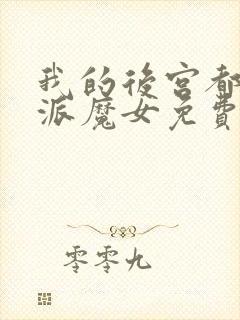 我的後宮都
派魔女免費
零零九